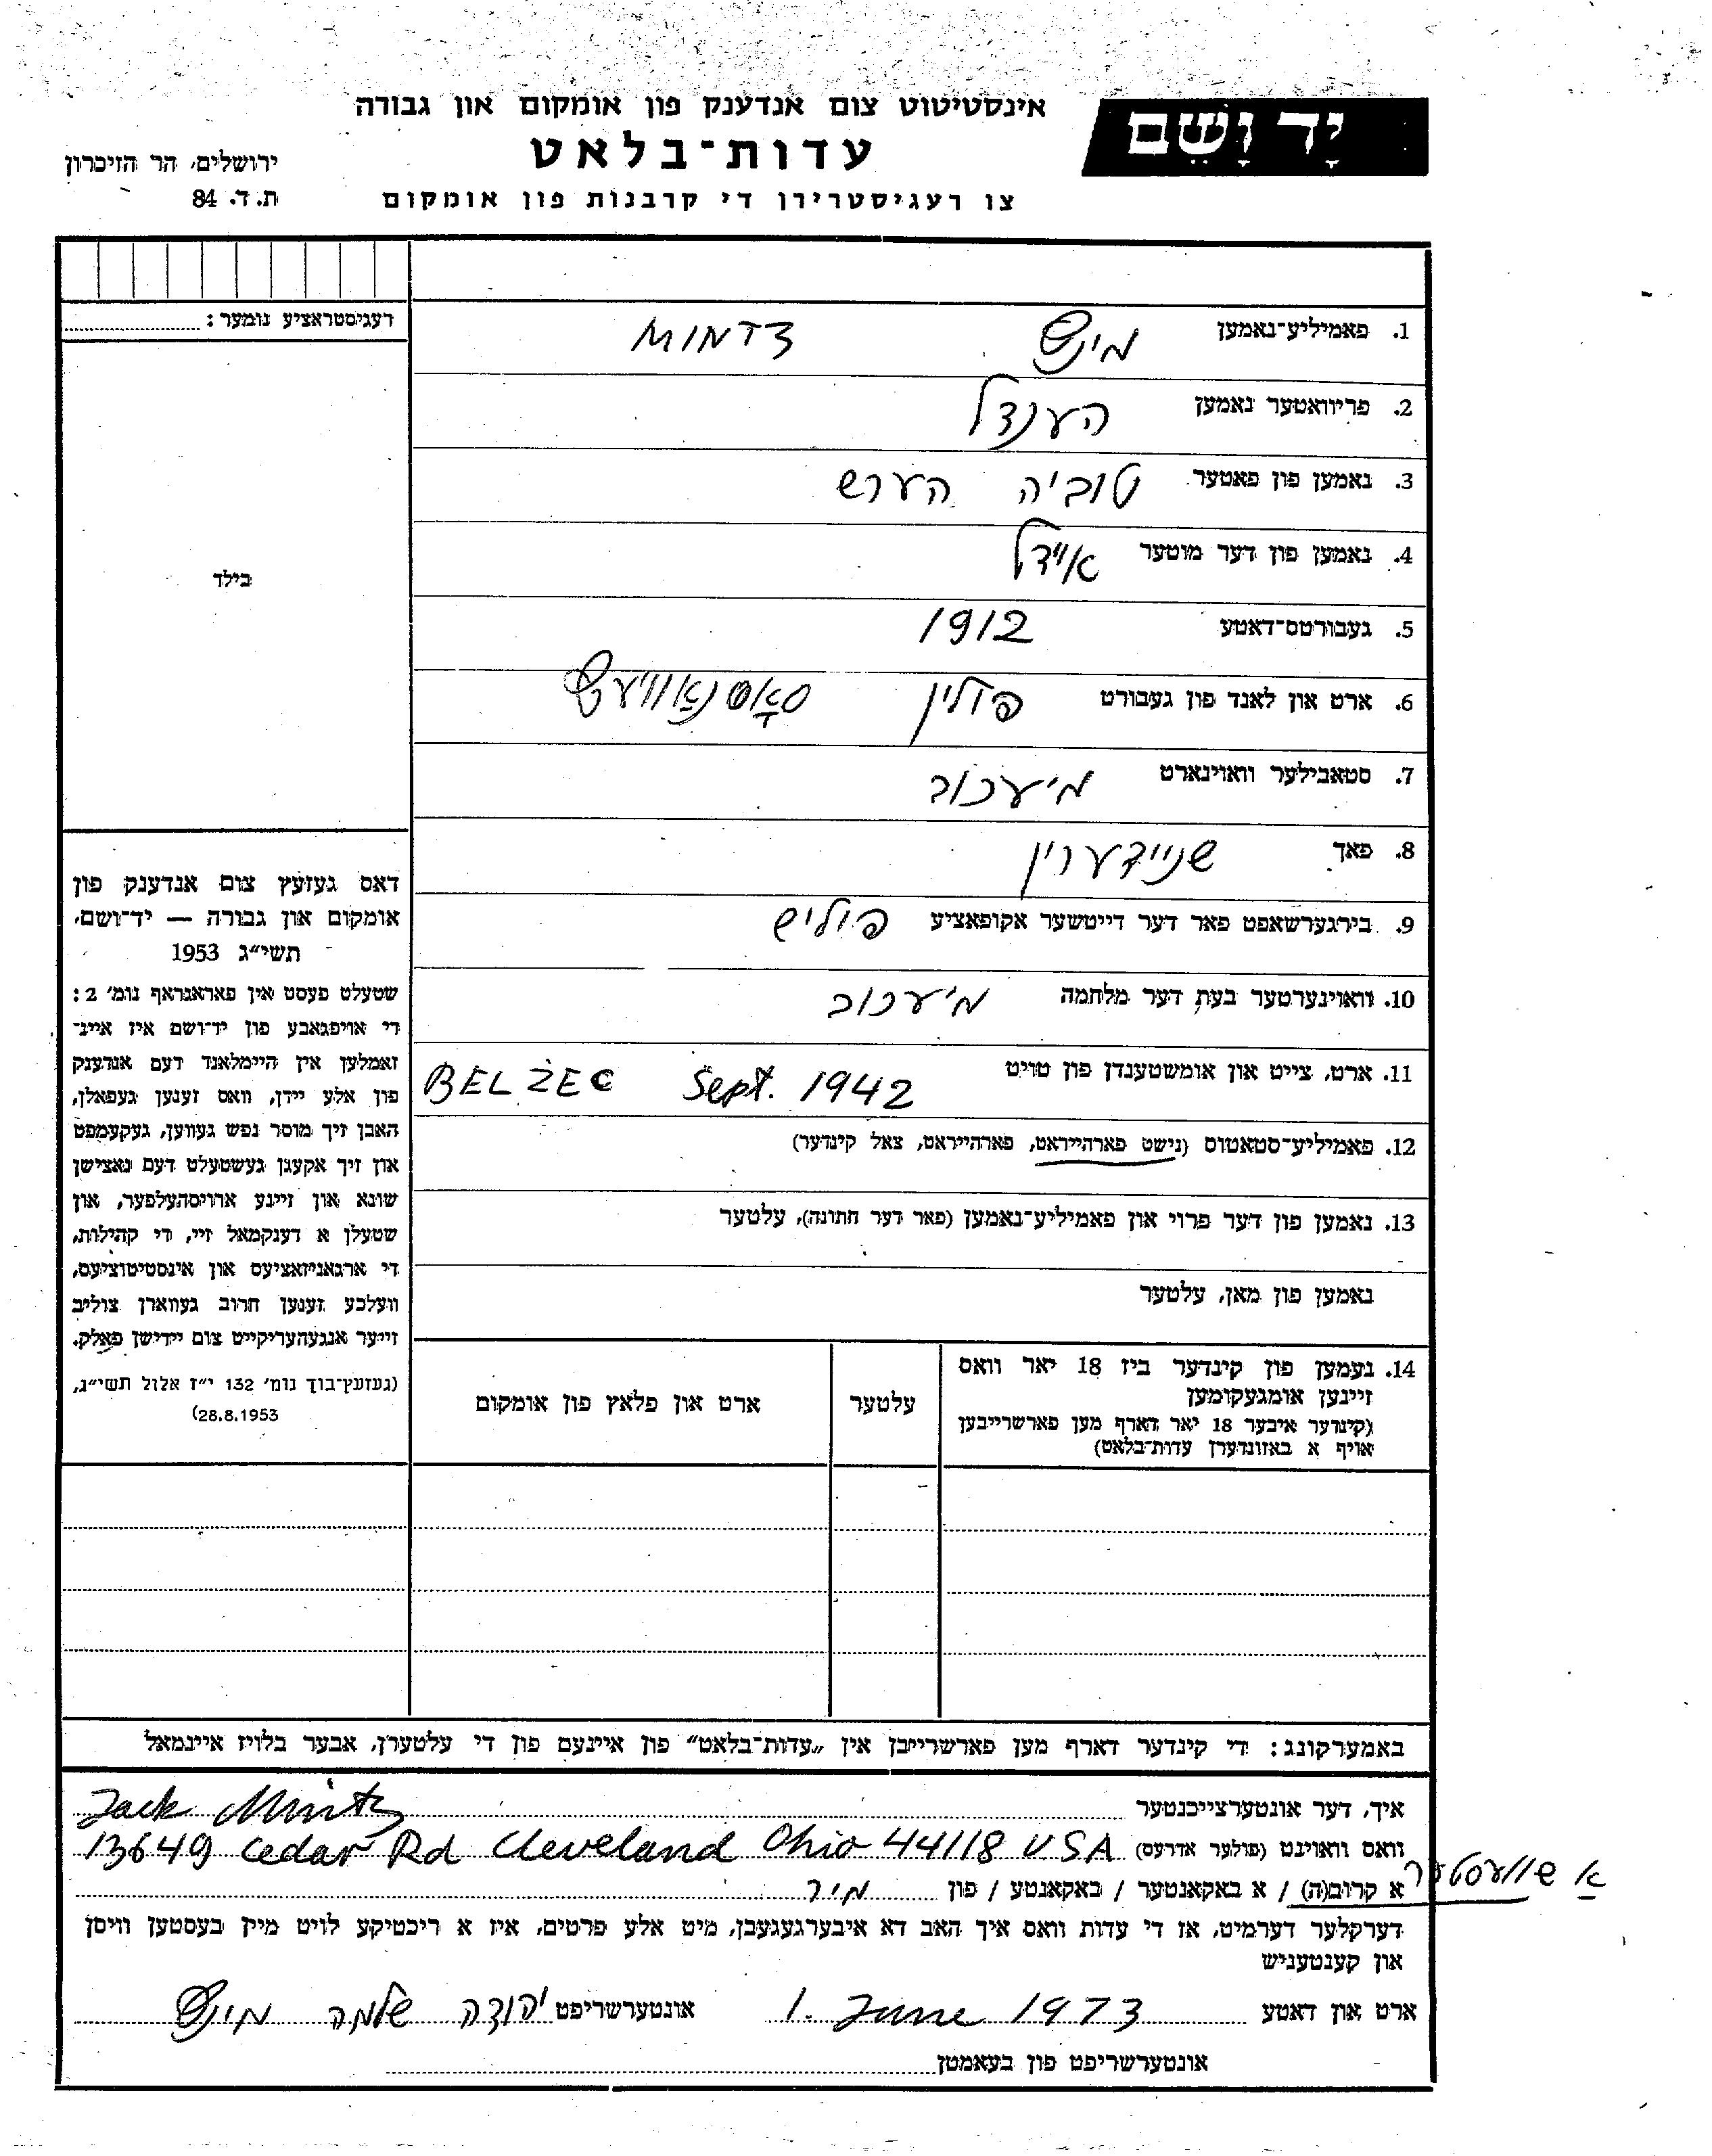 יָד וָשֵׁם
אינסטיטוט צום אנדענק פון אומקום און גבורה
עדות־בלאט
צו רעגיסטרירן די קרבנות פון אומקום
ירושלים, הר הזיכרון
ת. ד. 84
רעגיסטראציע נומער:
1. פאמיליע־נאמען מינץ MINTZ
2. פריוואטער נאמען הענדל
3. נאמען פון פאטער טוביה הערש
4. נאמען פון דער מוטער איידל
5. געבורטס־דאטע 1912
6. ארט און לאנד פון געבורט פולין סאסנאוויעץ
7. סטאבילער וואוינארט מיעכוב
8. פאך שניידערין
9. בירגערשאפט פאר דער דייטשער אקופאציע פוליש
10. וואוינערטער בעת דער מלחמה מיעכוב
11. ארט, צייט און אומשטענדן פון טויט BELZEC Sept. 1942
12. פאמיליע־סטאטוס (נישט פארהייראט, פארהייראט, צאל קינדער)
13. נאמען פון דער פרוי און פאמיליע־נאמען (פאר דער חתונה), עלטער
נאמען פון מאן, עלטער
14. נעמען פון קינדער ביז 18 יאר וואס
זיינען אומגעקומען
(קינדער איבער 18 יאר דארף מען פארשרייבן
אויף א באזונדערן עדות־בלאט)
עלטער
ארט און פלאץ פון אומקום
בילד
דאס געזעץ צום אנדענק פון
אומקום און גבורה — יד־ושם,
תשי״ג 1953
שטעלט פעסט אין פאראגראף נומ׳ 2:
די אויפגאבע פון יד־ושם איז איינ־
זאמלען אין היימלאנד דעם אנדענק
פון אלע יידן, וואס זענען געפאלן,
האבן זיך מוסר נפש געווען, געקעמפט
און זיך אקעגן געשטעלט דעם נאצישן
שונא און זיינע ארויסהעלפער, און
שטעלן א דענקמאל זיי, די קהילות,
די ארגאניזאציעס און אינסטיטוציעס,
וועלכע זענען חרוב געווארן צוליב
זייער אנגעהעריקייט צום יידישן פאלק.
(געזעץ־בוך נומ׳ 132 י״ז אלול תשי״ג,
28.8.1953)
באמערקונג: די קינדער דארף מען פארשרייבן אין „עדות־בלאט״ פון איינעם פון די עלטערן, אבער בלויז איינמאל
איך, דער אונטערצייכנטער Jack Mintz
וואס וואוינט (פולער אדרעס) 13649 Cedar Rd Cleveland Ohio 44118 USA
אַ שוועסטער
א קרוב(ה) / א באקאנטער / באקאנטע / פון מיר
דערקלער דערמיט, אז די עדות וואס איך האב דא איבערגעגעבן, מיט אלע פרטים, איז א ריכטיקע לויט מיין בעסטען וויסן
און קענטעניש
ארט און דאטע 1. June 1973 אונטערשריפט יהודה שלמה מינץ
אונטערשריפט פון בעאמטן